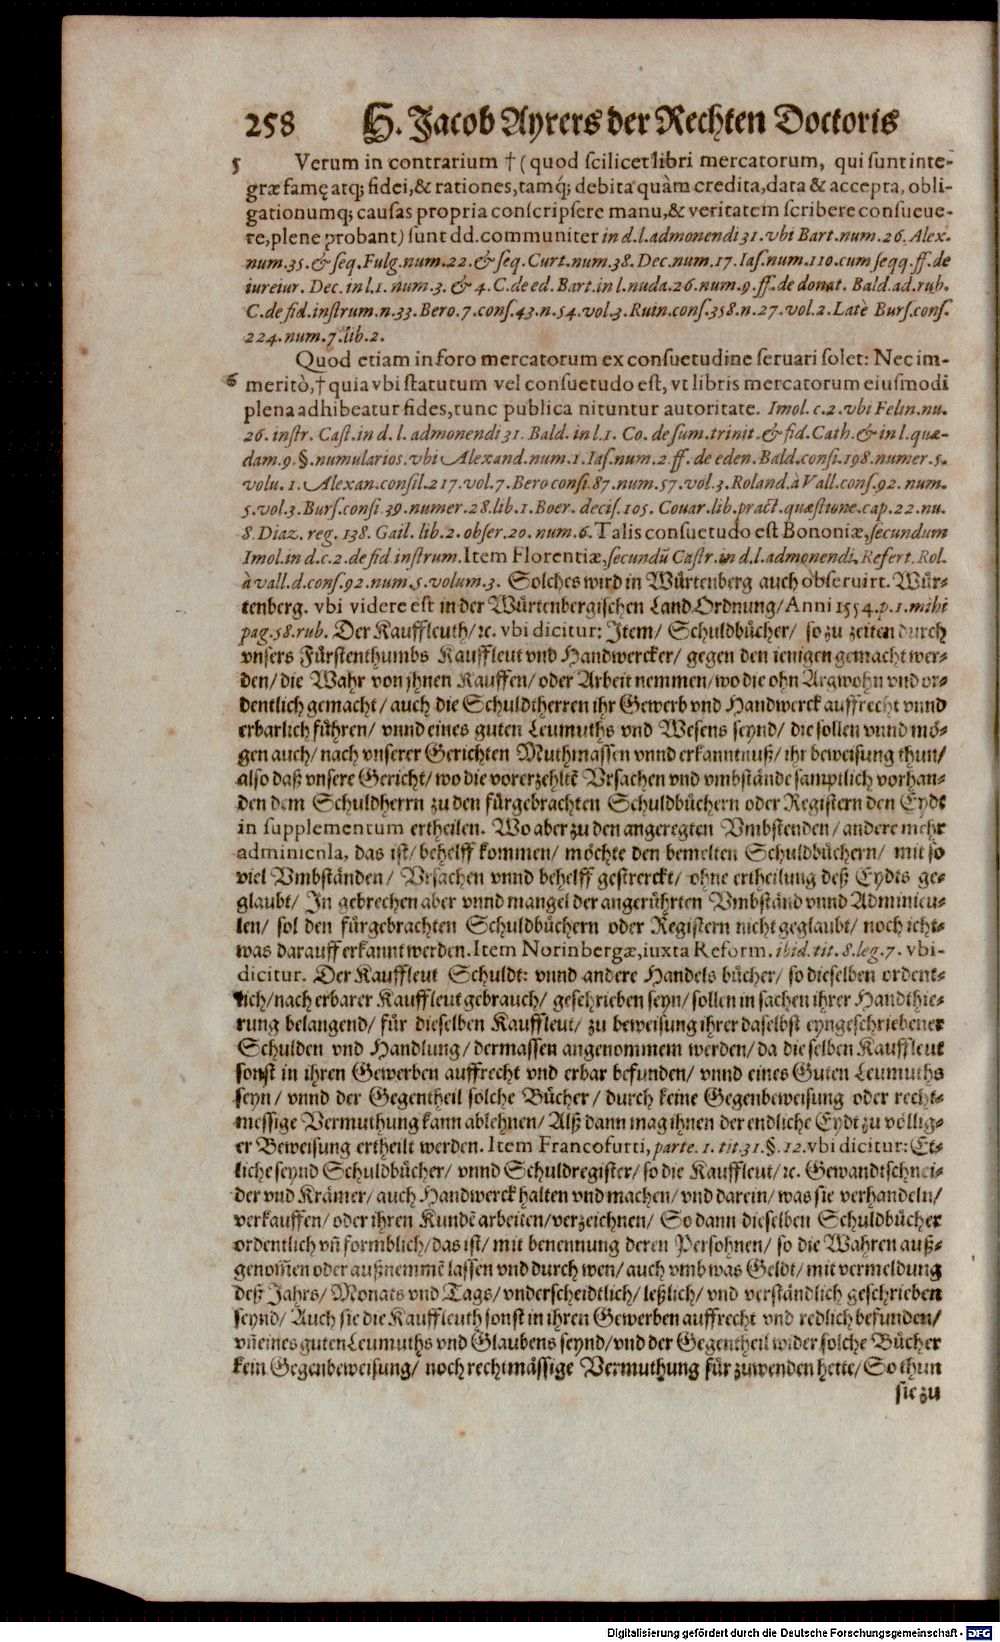 258 H. Jacob Ayrers der Rechten Doctoris
5 Verum in contrarium † (quod scilicet libri mercatorum, qui sunt inte-
græ famę atq; fidei, & rationes, tamq́; debita quàm credita, data & accepta, obli-
gationumq; causas propria conscripsere manu, & veritatem scribere consueue-
re, plene probant) sunt dd. communiter in d. l. admonendi 31. vbi Bart. num. 26. Alex.
num. 35. & seq. Fulg. num. 22. & seq. Curt. num. 38. Dec. num. 17. Ias. num. 110. cum seqq. ff. de
iureiur. Dec. in l. 1. num. 3. & 4. C. de ed. Bart. in l. nuda. 26. num. 9. ff. de donat. Bald. ad. rub.
C. de fid. instrum. n. 33. Bero. 7. cons. 43. n. 54. vol. 3. Ruin. cons. 358. n. 27. vol. 2. Latè Burs. cons.
224. num. 7. lib. 2.
Quod etiam in foro mercatorum ex consuetudine seruari solet: Nec im-
6 meritò, † quia vbi statutum vel consuetudo est, vt libris mercatorum eiusmodi
plena adhibeatur fides, tunc publica nituntur autoritate. Imol. c. 2. vbi Felin. nu.
26. instr. Cast. in d. l. admonendi 31. Bald. in l. 1. Co. de sum. trinit. & fid. Cath. & in l. quæ-
dam. 9. §. numularios. vbi Alexand. num. 1. Ias. num. 2. ff. de eden. Bald. consi. 198. numer. 5.
volu. 1. Alexan. consil. 217. vol. 7. Bero consi. 87. num. 57. vol. 3. Roland. à Vall. cons. 92. num.
5. vol. 3. Burs. consi. 39. numer. 28. lib. 1. Boer. decis. 105. Couar. lib. pract. quæstione. cap. 22. nu.
8. Diaz. reg. 138. Gail. lib. 2. obser. 20. num. 6. Talis consuetudo est Bononiæ, secundum
Imol. in d. c. 2. de fid instrum. Item Florentiæ, secundũ Castr. in d. l. admonendi. Refert. Rol.
à vall. d. cons. 92. num. 5. volum. 3. Solches wird in Würtenberg auch obseruirt. Wür-
tenberg. vbi videre est in der Würtenbergischen Land Ordnung/ Anni 1554. p. 1. mihi
pag. 58. rub. Der Kauffleuth/ ꝛc. vbi dicitur: Item/ Schuldbücher/ so zu zeiten durch
vnsers Fürstenthumbs Kauffleut vnd Handwercker/ gegen den ienigen gemacht wer-
den/ die Wahr von jhnen Kauffen/ oder Arbeit nemmen/ wo die ohn Argwohn vnd or-
dentlich gemacht/ auch die Schuldtherren ihr Gewerb vnd Handwerck auffrecht vnnd
erbarlich führen/ vnnd eines guten Leumuths vnd Wesens seynd/ die sollen vnnd mö-
gen auch/ nach vnserer Gerichten Muthmassen vnnd erkanntnuß/ ihr beweisung thun/
also daß vnsere Gericht/ wo die vorerzehltẽ Vrsachen vnd vmbstände samptlich vorhan-
den dem Schuldherrn zu den fürgebrachten Schuldbüchern oder Registern den Eydt
in supplementum ertheilen. Wo aber zu den angeregten Vmbstenden/ andere mehr
adminicnla, das ist/ behelff kommen/ möchte den bemelten Schuldbüchern/ mit so
viel Vmbständen/ Vrsachen vnnd behelff gestrerckt/ ohne ertheilung deß Eydts ge-
glaubt/ In gebrechen aber vnnd mangel der angerührten Vmbständ vnnd Adminicu-
len/ sol den fürgebrachten Schuldbüchern oder Registern nicht geglaubt/ noch icht-
was darauff erkannt werden. Item Norinbergæ, iuxta Reform. ibid. tit. 8. leg. 7. vbi-
dicitur. Der Kauffleut Schuldt: vnnd andere Handels bücher/ so dieselben ordent-
lich/ nach erbarer Kauffleut gebrauch/ geschrieben seyn/ sollen in sachen ihrer Handthie-
rung belangend/ für dieselben Kauffleut/ zu beweisung ihrer daselbst eyngeschriebener
Schulden vnd Handlung/ dermassen angenommem werden/ da die selben Kauffleut
sonst in ihren Gewerben auffrecht vnd erbar befunden/ vnnd eines Guten Leumuths
seyn/ vnnd der Gegentheil solche Bücher/ durch keine Gegenbeweisung oder recht-
messige Vermuthung kann ablehnen/ Alß dann mag ihnen der endliche Eydt zu völlig-
er Beweisung ertheilt werden. Item Francofurti, parte. 1. tit. 31. §. 12. vbi dicitur: Et-
liche seynd Schuldbücher/ vnnd Schuldregister/ so die Kauffleut/ ꝛc. Gewandtschnei-
der vnd Krämer/ auch Handwerck halten vnd machen/ vnd darein/ was sie verhandeln/
verkauffen/ oder ihren Kundẽ arbeiten/ verzeichnen/ So dann dieselben Schuldbücher
ordentlich vñ formblich/ das ist/ mit benennung deren Persohnen/ so die Wahren auß-
genom̃en oder außnemmẽ lassen vnd durch wen/ auch vmb was Geldt/ mit vermeldung
deß Jahrs/ Monats vnd Tags/ vnderscheidtlich/ leßlich/ vnd verständlich geschrieben
seynd/ Auch sie die Kauffleuth sonst in ihren Gewerben auffrecht vnd redlich befunden/
vñ eines guten Leumuths vnd Glaubens seynd/ vnd der Gegentheil wider solche Bücher
kein Gegenbeweisung/ noch rechtmässige Vermuthung für zuwenden hette/ So thun
sie zu
Digitalisierung gefördert durch die Deutsche Forschungsgemeinschaft - DFG